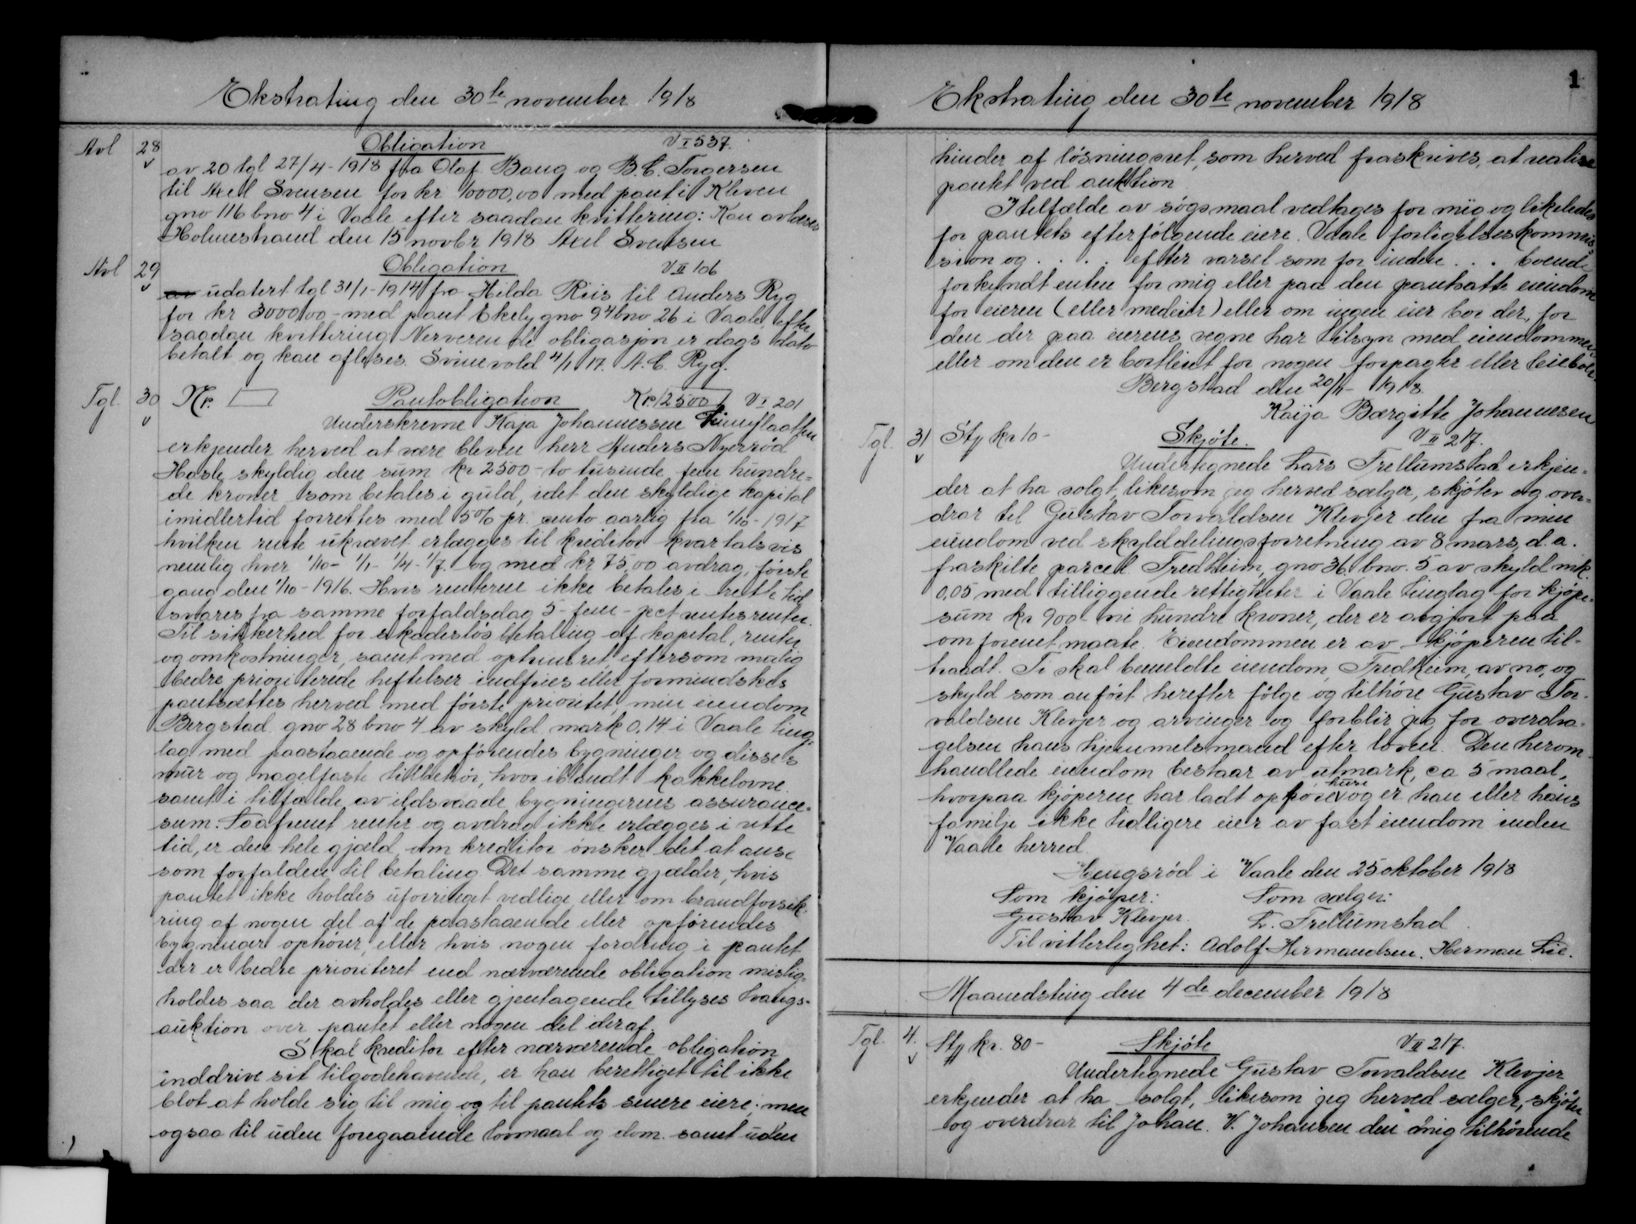 Ekstrating den 30te november 1918
Avl 28 Obligation V I 537.
av 20 tgl 27/4-1918 fra Olaf Baug og B.C. Torgersen
til Axel Svensen for kr 10000,00 med pant i Kleven
gno 116 bno 4 i Vaale efter saadan kvittering: Kan avlæses
Holmestrand den 15 novbr 1918 Axel Svensen
Avl 29 Obligation V II 106
udatert tgl 31/1-1914 fra Hilda Riis til Anders Ryg
for kr 3000,00 - med pant Ekely gno 94 bno 26 i Vaale, efter
saadan kvittering Nerværende obligasjon er dags dato
betalt og kan aflæses Svinevold 4/1 17. A.C. Ryg.
Tgl. 30 Nr. Pantobligation Kr. 2500 V I 201
Underskrevne Kaja Johannessen
erkjender herved at være bleven herr Anders Nyerrød
Hasle skyldig den sum kr 2500 - to tusinde fem hundre-
de kroner som betales i guld, idet den skyldige kapital
imidlertid forrettes med 5% pr. cento aarlig fra 1/10-1917
hvilken rente ukrævet erlægges til kreditor kvartalsvis
nemlig hver 1/10- 1/1- 1/4- 1/7 og med kr 75,00 avdrag, første
gang den 1/10-1916. Hvis renterne ikke betales i rette tid
svares fra samme forfaldsdag 5 - fem - pct rentesrenter.
Til sikkerhed for skadesløs betaling af kapital, renter
og omkostninger, samt med optrinsret eftersom mulig
bedre prioriterede heftelser indfries eller formindskes
pantsættes herved med første prioritet min eiendom
Bergstad gno 28 bno 4 av skyld mark 0,14 i Vaale ting-
lag med paastaaende og opførendes bygninger og disses
mur og nagelfaste tilbehør, hvor iblandt kakkelovne
samt i tilfælde av ildsvaade bygningernes assurance-
sum: Saafremt renter og avdrag ikke erlægges i rette
tid, er den hele gjæld om kreditor ønsker det at anse
som forfalden til betaling Det samme gjælder, hvis
pantet ikke holdes uforringet vedlige eller om brandforsik-
ring af nogen del af de paastaaende eller opførendes
bygninger ophører, eller hvis nogen fordring i pantet
der er bedre prioriteret end nærværende obligation mislig-
holdes saa der avholdes eller gjentagende tillyses tvangs-
auktion over pantet eller nogen del deraf.
Skal kreditor efter nærværende obligation
inddrive sit tilgodehavende, er han berettiget til ikke
blot at holde sig til mig og til pantets senere eiere; men
ogsaa til uden foregaaende lovmaal og dom samt uden
1
Ekstrating den 30te november 1918
hinder af løsningsret, som herved fraskrives, at realisere
pantet ved auktion
I tilfælde av søgsmaal vedtages for mig og likeledes
for pantets efterfølgende eiere. Vaale forligelseskommis-
sion og . . . . efter varsel som for inden . . . boende
forkyndt enten for mig eller paa den pantsatte eiendom
for eieren (eller medeier) eller om ingen eier bor der, for
den der paa eierens vegne har tilsyn med eiendommen
eller om den er bortleiet for nogen forpagter eller leieboer
Bergstad den 20/11- 1918.
Kaija Bærgitte Johannesen
Tgl. 31 Stp kr 10- Skjøte. V II 217.
Undertegnede Lars Trellumstad erkjen-
der at ha solgt, likesom jeg herved sælger, skjøter og over-
drar til Gustav Torvaldsen Klevjer den fra min
eiendom ved skylddelingsforretning av 8 mars d.a.
fraskilte parcel Fredheim, gno 36 bno. 5 av skyld mk.
0,05 med tilliggende rettigheter i Vaale tinglag for kjøpe-
sum kr 900 - ni hundre kroner, der er avgjort paa
omforenet maate. Eiendommen er av kjøperen til-
traadt. Ti skal bemeldte eiendom, Fredheim, av no, og
skyld som anført herefter følge og tilhøre Gustav Tor-
valdsen Klevjer og arvinger og forblir jeg for overdra-
gelsen hans hjemmelsmand efter loven. Den herom-
handlede eiendom bestaar av utmark, ca 5 maal,
hvorpaa kjøperen har ladt opføre hus og er han eller hans
familje ikke tidligere eier av fast eiendom inden
Vaale herred
Hengsrød i Vaale den 25 oktober 1918
Som kjøper: Som sælger:
Gustav Klevjer. L. Trellumstad.
Til vitterlighet: Adolf Hermandsen. Herman Lie.
Maanedsting den 4de december 1918
Tgl. 4. Stp kr. 80- Skjøte V II 217.
Undertegnede Gustav Torvaldsen Klevjer
erkjender at ha solgt, likesom jeg herved sælger, skjøter
og overdrar til Johan. V. Johansen den mig tilhørende